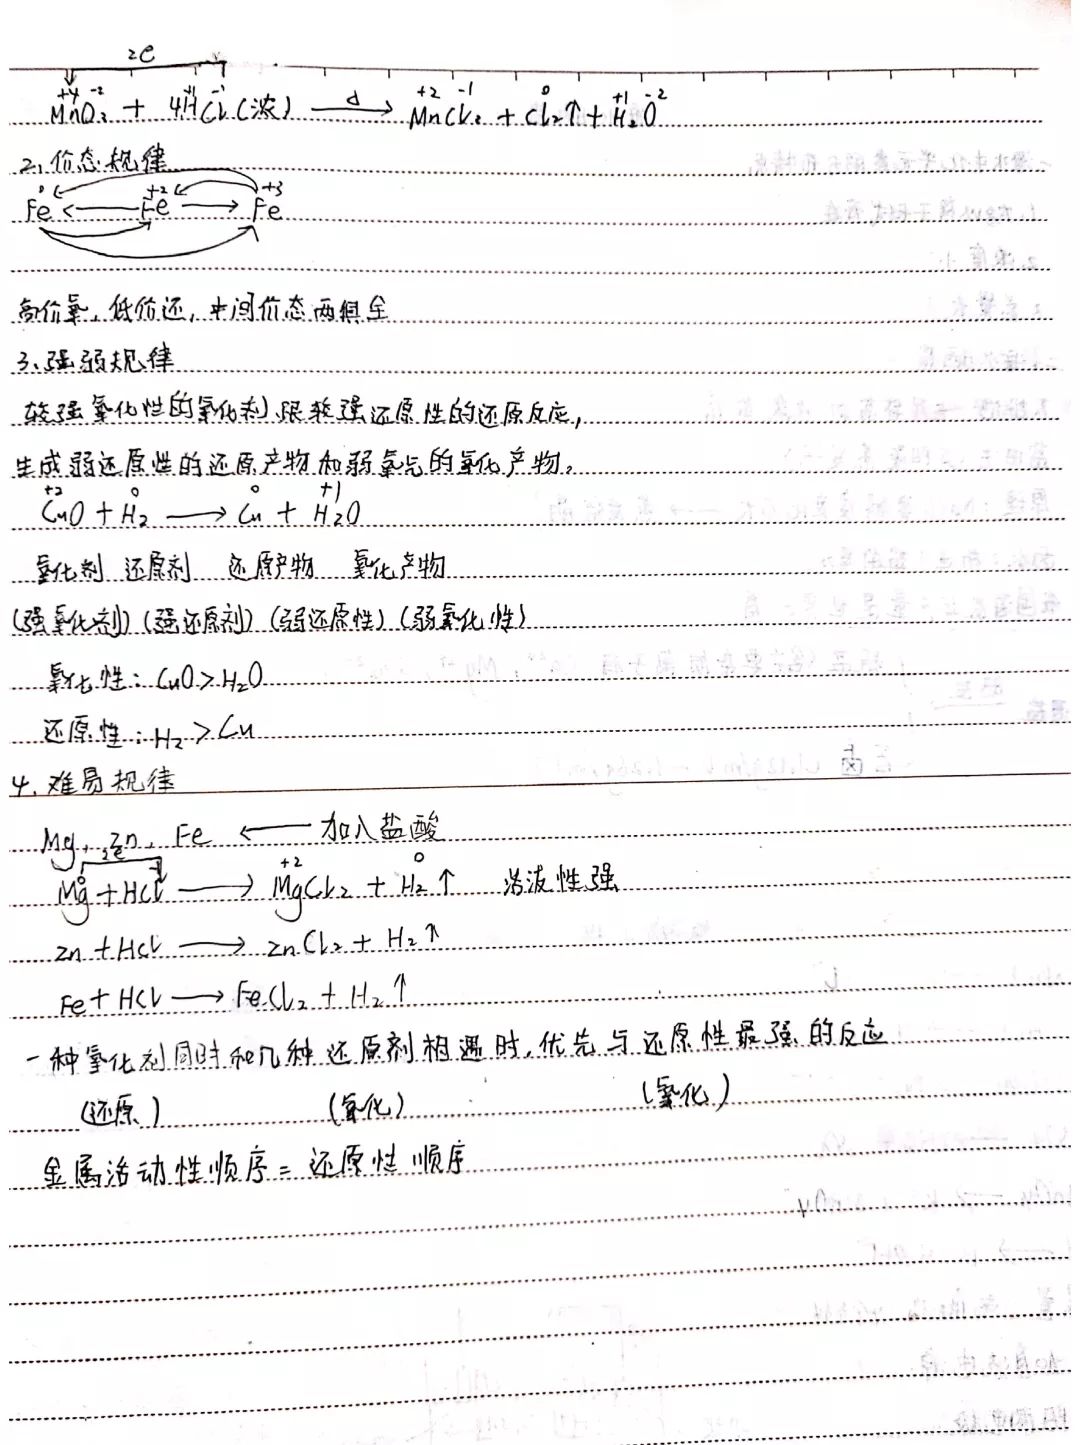 2e
+4 -2 +1 -1 +2 -1 0 +1 -2
MnO₂ + 4HCl(浓) —Δ→ MnCl₂ + Cl₂↑ + H₂O
2、价态规律
0 +2 +3
Fe ← Fe → Fe
高价氧,低价还,中间价态两俱全
3、强弱规律
较强氧化性的氧化剂跟较强还原性的还原反应,
生成弱还原性的还原产物和弱氧先的氧化产物。
+2 0 0 +1
CuO + H₂ → Cu + H₂O
氧化剂 还原剂 还原产物 氧化产物
(强氧化剂)(强还原剂)(弱还原性)(弱氧化性)
氧化性:CuO>H₂O
还原性:H₂>Cu
4、难易规律
Mg、Zn、Fe ← 加入盐酸
2e
0 +2 0
Mg + HCl → MgCl₂ + H₂↑ 活泼性强
Zn + HCl → ZnCl₂ + H₂↑
Fe + HCl → FeCl₂ + H₂↑
一种氧化剂同时和几种还原剂相遇时,优先与还原性最强的反应
(还原) (氧化) (氧化)
金属活动性顺序=还原性顺序